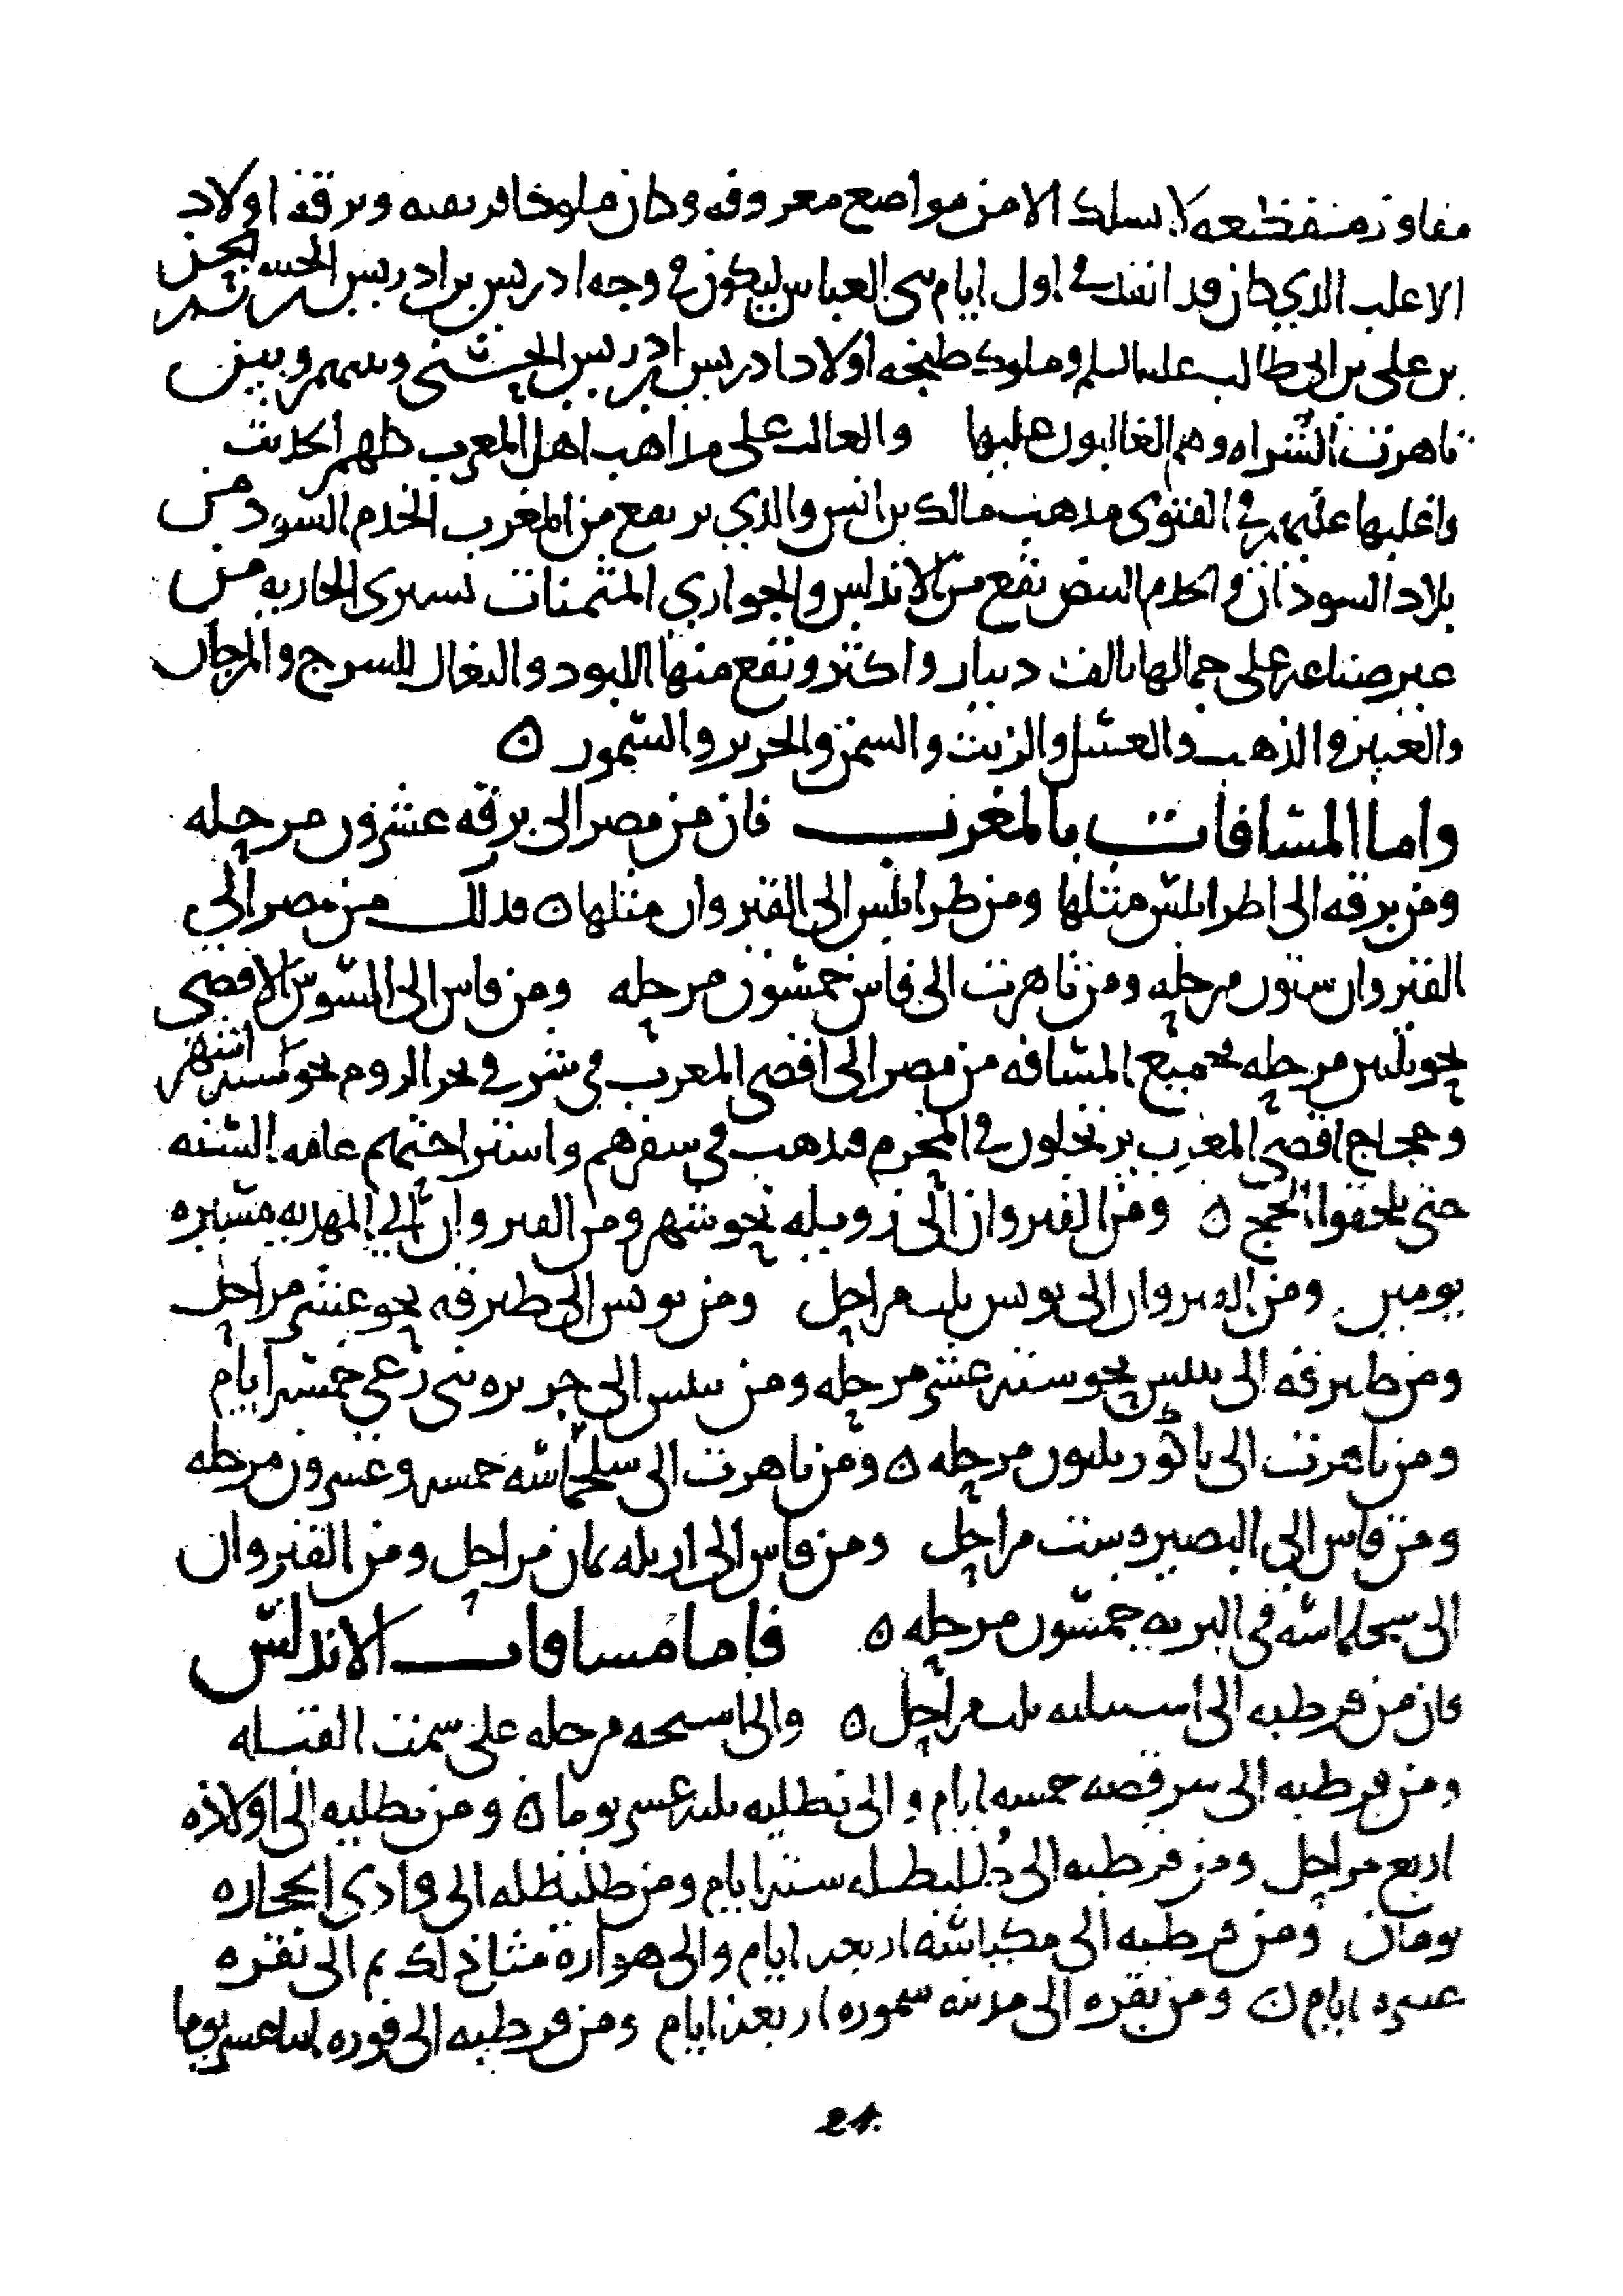 مفاوز منقطعه لا يسلك الا من مواضع معروفه وكان ملوك افريقيه وبرقه اولاد
الاغلب الذي كان قد انفذ في اول ايام بني العباس ليكون في وجه ادريس بن ادريس الحسني بن
بن علي بن ابي طالب عليه السلم وملوك طنجه اولاد ادريس بن ادريس الحسني وبينهم وبين
تاهرت الشراه وهم الغالبون عليها والغالب على مذاهب اهل المغرب كلهم الحديث
واغلبها عليهم في الفتوى مذهب مالك بن انس والذي يرتفع من المغرب الخدم السود من
بلاد السودان والخدم البيض تقع من الاندلس والجواري المثمنات تشترى الجاريه من
غير صناعه على جمالها بالف دينار واكثر وتقع منها اللبود والبغال للسرج والمرجان
والعنبر والذهب والعسل والزيت والسمن والحرير والسمور ه
واما المسافات بالمغرب فان من مصر الى برقه عشرون مرحله
ومن برقه الى اطرابلس مثلها ومن طرابلس الى القيروان مثلها ه فذلك من مصر الى
القيروان ستون مرحله ومن تاهرت الى فاس خمسون مرحله ومن فاس الى السوس الاقصى
نحو ثلثين مرحله فجميع المسافه من مصر الى اقصى المغرب في شرقي بحر الروم نحو سته اشهر
وحجاج اقصى المغرب يرتحلون في المحرم فيذهب في سفرهم واستراحتهم عامه السنه
حتى يلحقوا الحج ه ومن القيروان الى زويله نحو شهر ومن القيروان الى المهديه مسيره
يومين ومن القيروان الى تونس ثلث مراحل ومن تونس الى طبرقه نحو عشر مراحل
ومن طبرقه الى تنس نحو سته عشر مرحله ومن تنس الى جزيره بني زغي خمسه ايام
ومن تاهرت الى ناكور ثلثون مرحله ه ومن تاهرت الى سجلماسه خمسه وعشرون مرحله
ومن فاس الى البصيره ست مراحل ومن فاس الى ازيله ثمان مراحل ومن القيروان
الى سجلماسه في البريه خمسون مرحله ه فاما مسافات الاندلس
فان من قرطبه الى اشبيليه ثلث مراحل ه والى استجه مرحله على سمت القبله
ومن قرطبه الى سرقصه خمسه ايام والى تطليه ثلثه عشر يوما ه ومن تطليه الى لاوذه
اربع مراحل ومن قرطبه الى طليطله سته ايام ومن طليطله الى وادي الحجاره
يومان ومن قرطبه الى مكناسه اربعه ايام والى هواره مثل ذلك ثم الى نفزه
عشره ايام ه ومن نفزه الى مدينه سموره اربعه ايام ومن قرطبه الى قوريه اثنا عشر يوما
21